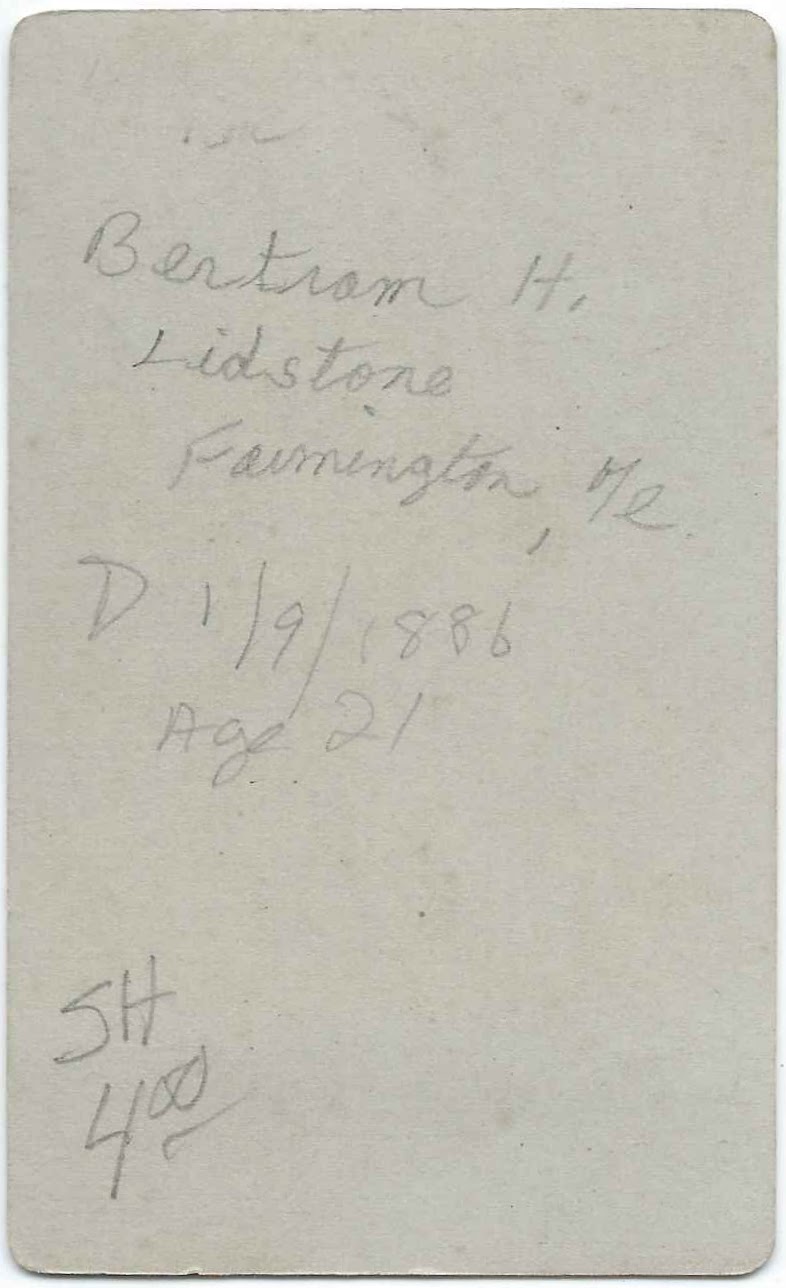 Bertram H.
Lidstone
Farmington, Me.
D 1/9/1886
Age 21
SH
4 00